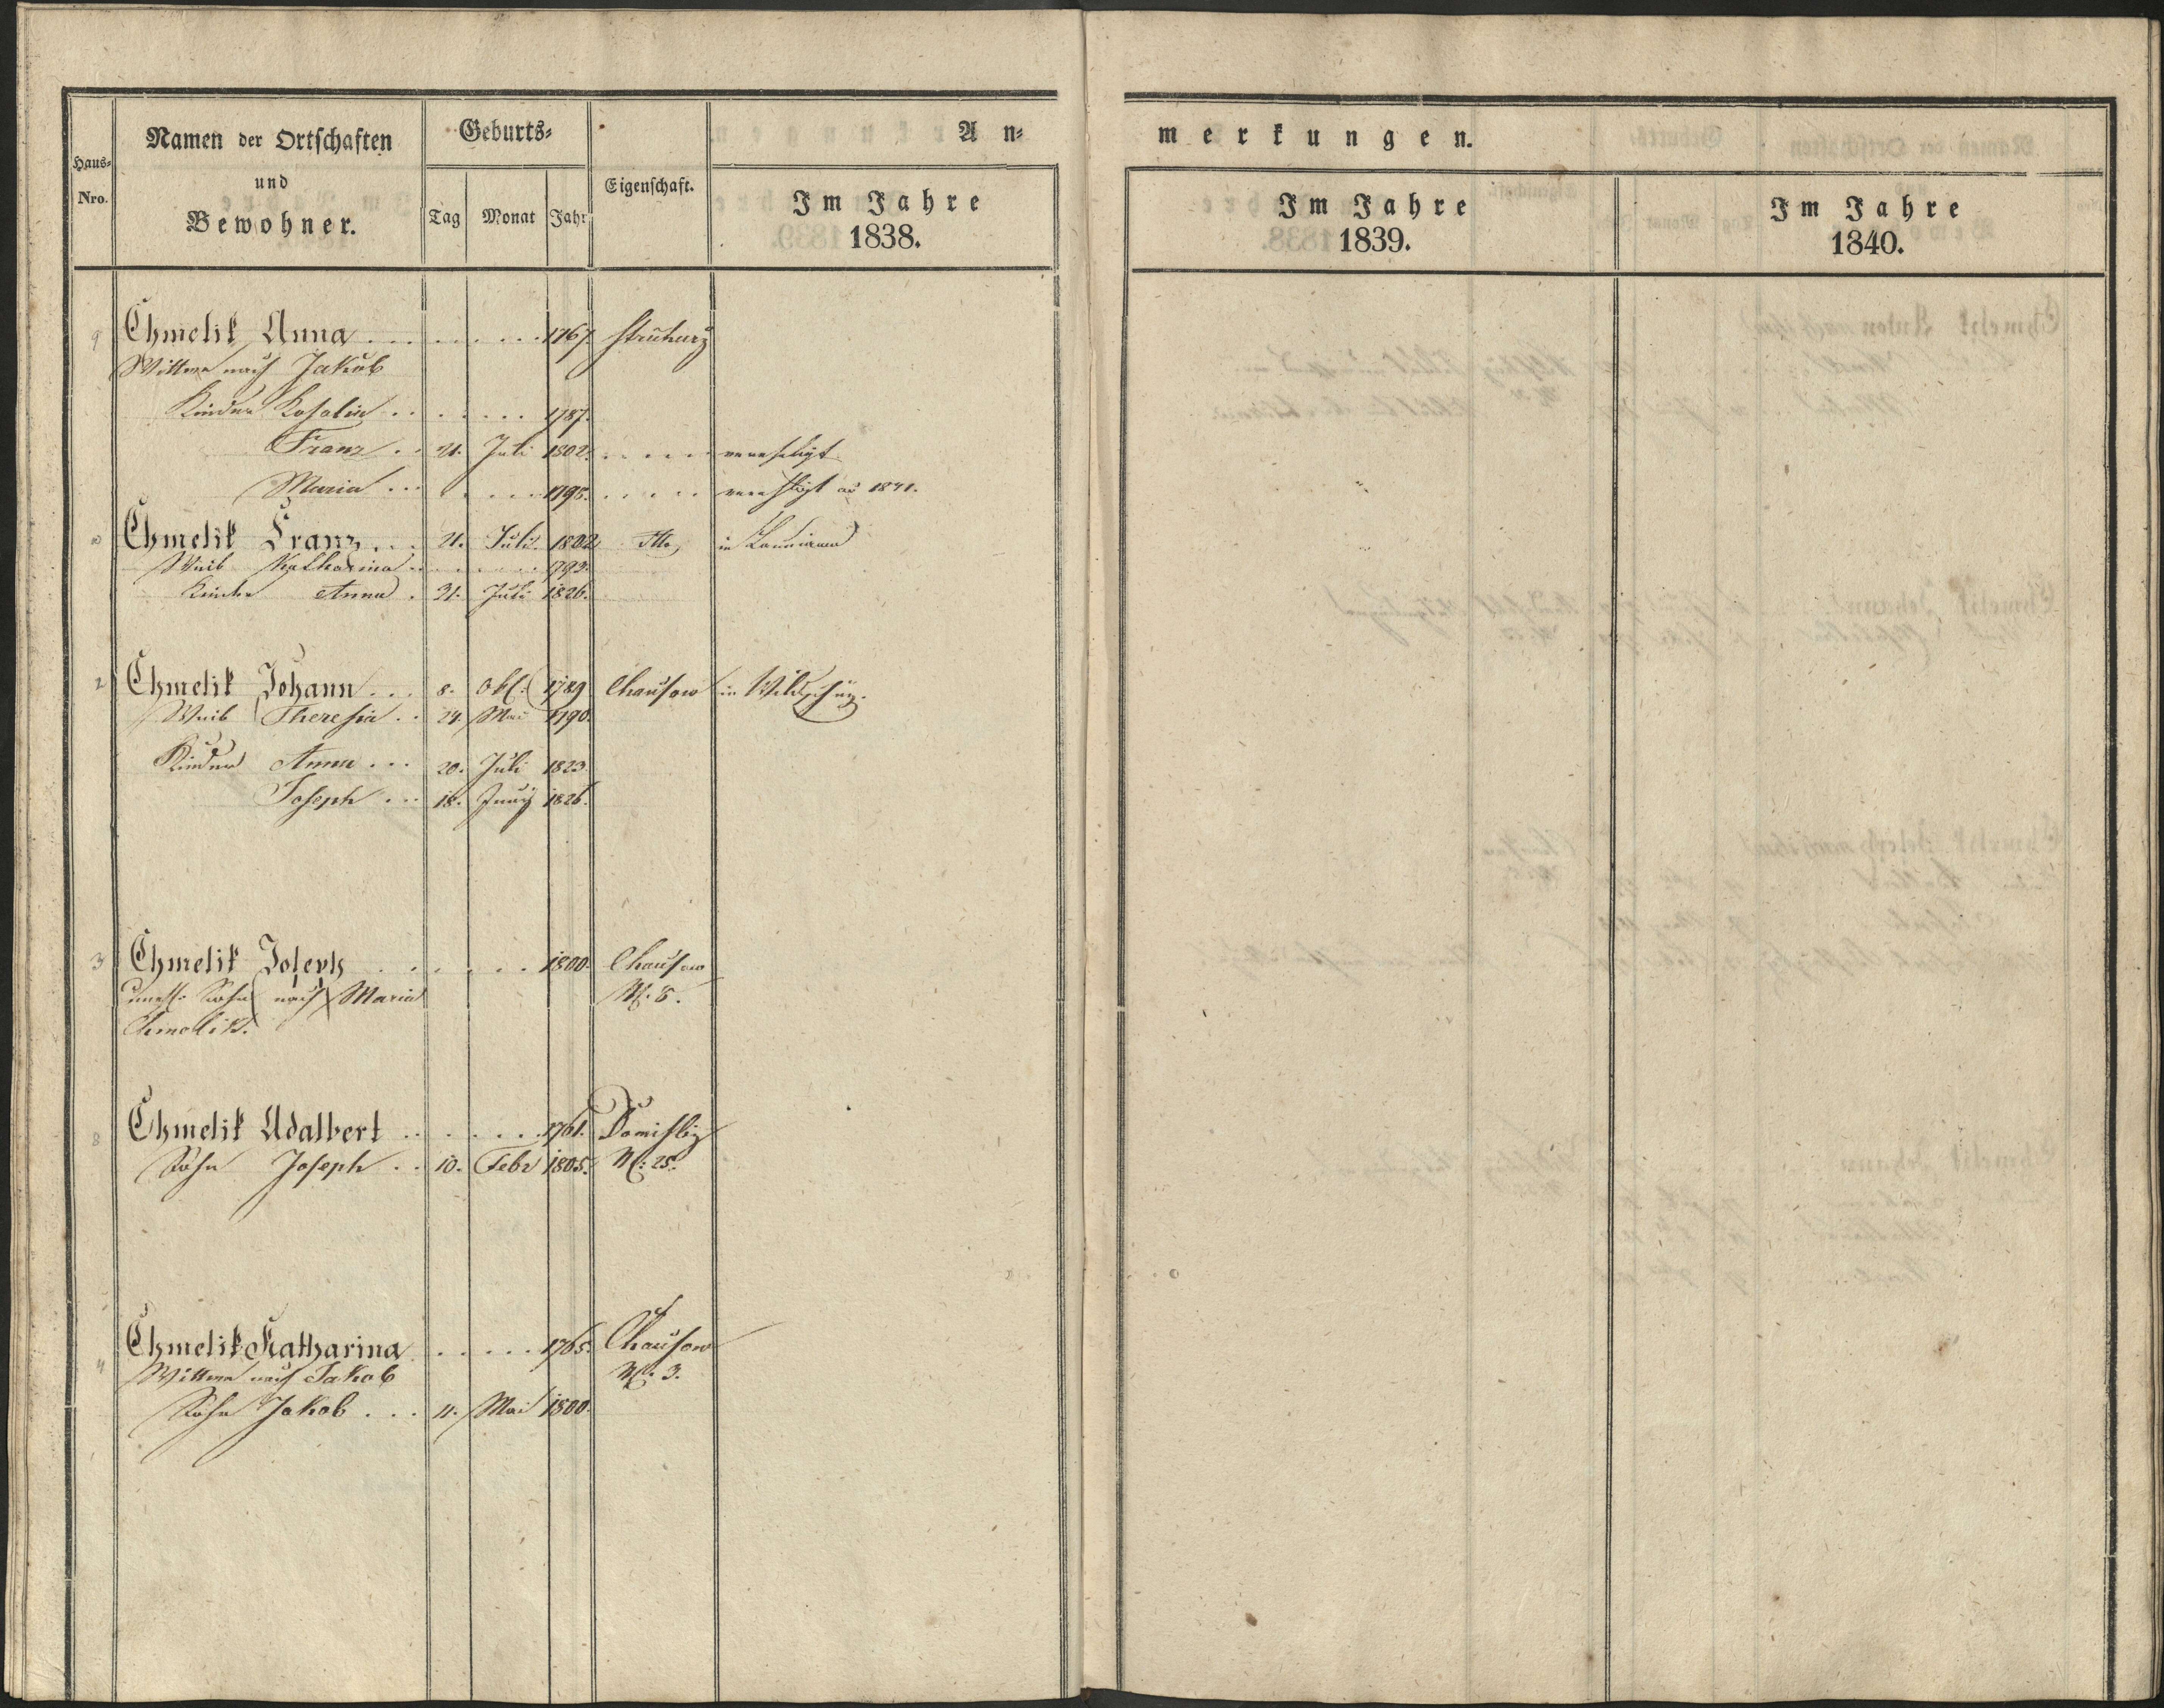 Haus-Nro.
Namen der Ortschaften
und
Bewohner.
Geburts-
Tag Monat Jahr
Eigenschaft.
An-
Im Jahre
1838.
merkungen.
Im Jahre
1839.
Im Jahre
1840.
9 Chmelik Anna 1767.
Wittwe nach Jakob
Kinder Rosalia 1787.
Franz 21. Juli 1802. verehligt
Maria 1795. verehligt 1841.
Chmelik Franz 21. Juli 1802 dtto in
Weib Katharina 1793.
Kinder Anna 31. Juli 1826.
2 Chmelik Johann 8. Okt. 1789 Chausow in
Weib Theresia 24. Mai 1790.
Kinder Anna 20. Juli 1823
Joseph 18. Juny 1826.
3 Chmelik Joseph 1800. Chausow
unehl. Sohn nach Maria N: 8.
Chmelik.
8 Chmelik Adalbert 1761. Domisliz
Sohn Joseph 10. Febr 1805. N: 25.
4 Chmelik Katharina 1765. Chausow
Wittwe nach Jakob N: 3.
Sohn Jakob 11. Mai 1800.